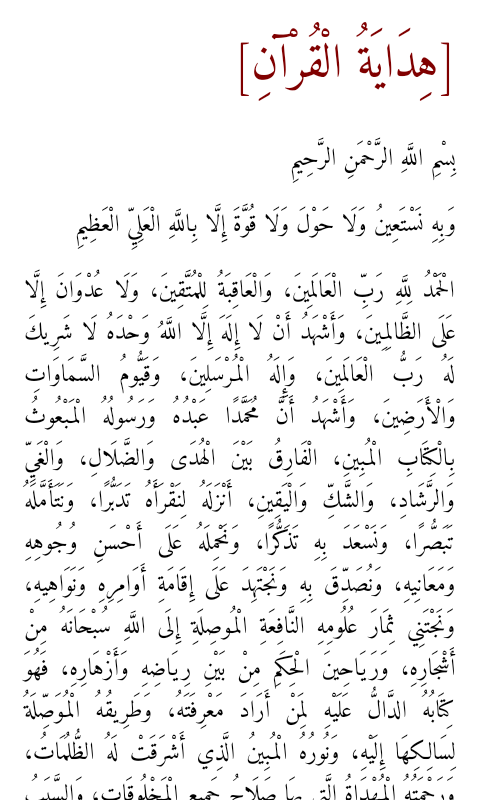 [هِدَايَةُ الْقُرْآنِ]
بِسْمِ اللَّهِ الرَّحْمَنِ الرَّحِيمِ
وَبِهِ نَسْتَعِينُ وَلَا حَوْلَ وَلَا قُوَّةَ إِلَّا بِاللَّهِ الْعَلِيِّ الْعَظِيمِ
الْحَمْدُ لِلَّهِ رَبِّ الْعَالَمِينَ، وَالْعَاقِبَةُ لِلْمُتَّقِينَ، وَلَا عُدْوَانَ إِلَّا
عَلَى الظَّالِمِينَ، وَأَشْهَدُ أَنْ لَا إِلَهَ إِلَّا اللَّهُ وَحْدَهُ لَا شَرِيكَ
لَهُ رَبُّ الْعَالَمِينَ، وَإِلَهُ الْمُرْسَلِينَ، وَقَيُّومُ السَّمَاوَاتِ
وَالْأَرَضِينَ، وَأَشْهَدُ أَنَّ مُحَمَّدًا عَبْدُهُ وَرَسُولُهُ الْمَبْعُوثُ
بِالْكِتَابِ الْمُبِينِ، الْفَارِقُ بَيْنَ الْهُدَى وَالضَّلَالِ، وَالْغَيِّ
وَالرَّشَادِ، وَالشَّكِّ وَالْيَقِينِ، أَنْزَلَهُ لِنَقْرَأَهُ تَدَبُّرًا، وَنَتَأَمَّلَهُ
تَبَصُّرًا، وَنَسْعَدَ بِهِ تَذَكُّرًا، وَنَحْمِلَهُ عَلَى أَحْسَنِ وُجُوهِهِ
وَمَعَانِيهِ، وَنُصَدِّقَ بِهِ وَنَجْتَهِدَ عَلَى إِقَامَةِ أَوَامِرِهِ وَنَوَاهِيهِ،
وَنَجْتَنِي ثِمَارَ عُلُومِهِ النَّافِعَةِ الْمُوصلَةِ إِلَى اللَّهِ سُبْحَانَهُ مِنْ
أَشْجَارِهِ، وَرَيَاحِينَ الْحِكَمِ مِنْ بَيْنِ رِيَاضِهِ وَأَزْهَارِهِ، فَهُوَ
كِتَابُهُ الدَّالُّ عَلَيْهِ لِمَنْ أَرَادَ مَعْرِفَتَهُ، وَطَرِيقُهُ الْمُوَصِّلَةُ
لِسَالِكِهَا إِلَيْهِ، وَنُورُهُ الْمُبِينُ الَّذِي أَشْرَقَتْ لَهُ الظُّلُمَاتُ،
وَرَحْمَتُهُ الْمُهْدَاةُ الَّتِي بِهَا صَلَاحُ جَمِيعِ الْمَخْلُوقَاتِ، وَالسَّبَبُ